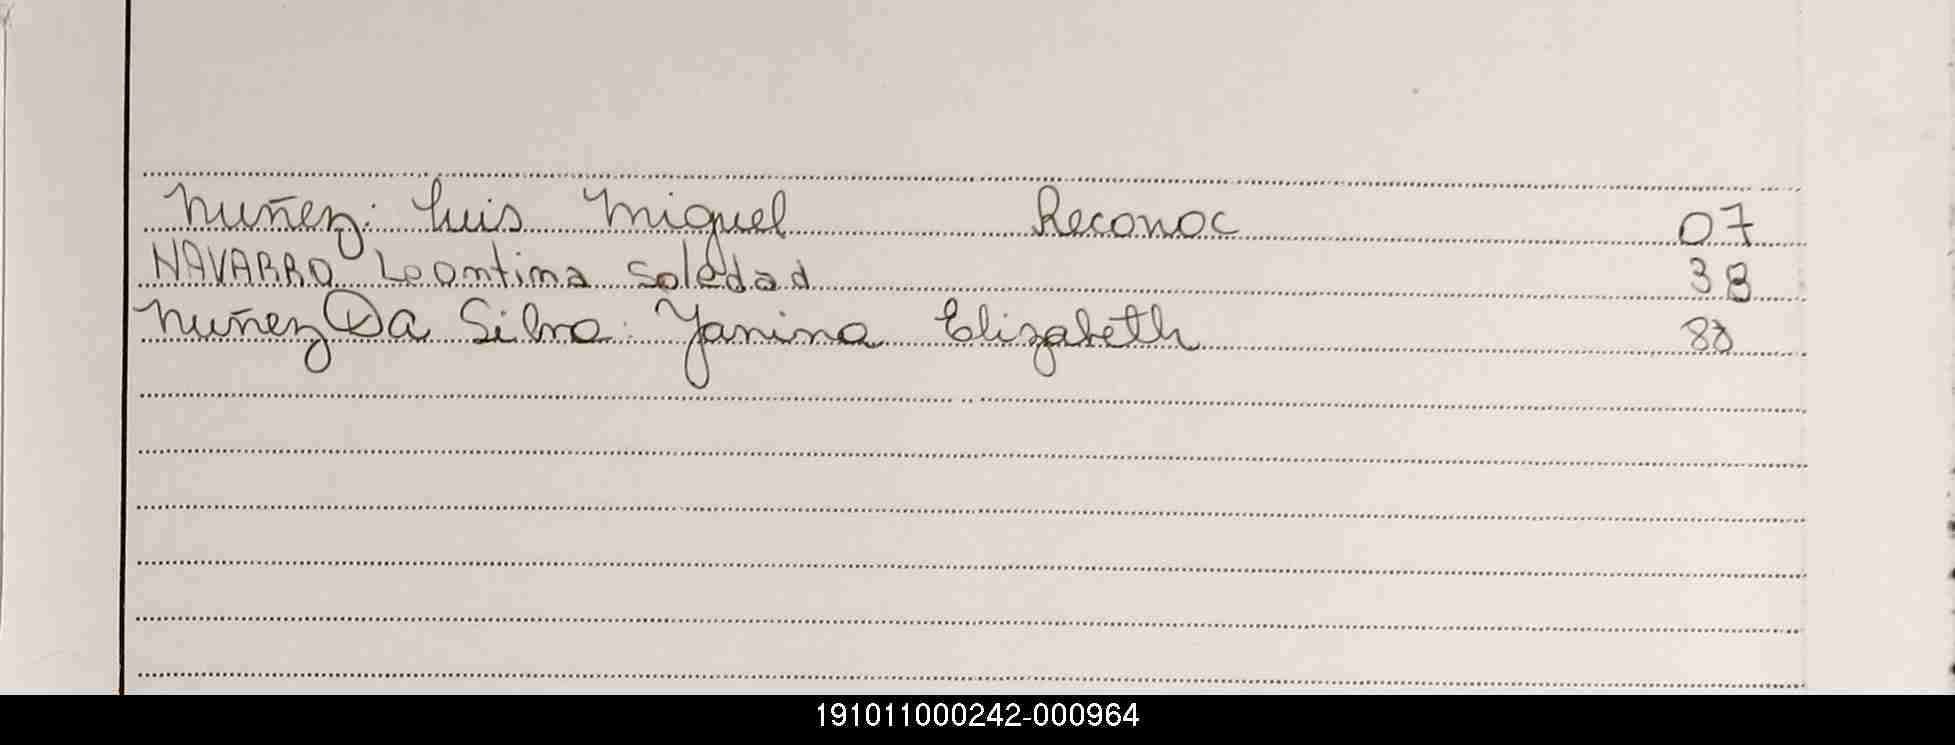 Nuñez: Luis Miguel Reconoc 07
NAVARRO Leontina Soledad 38
Nuñez Da Silva: Yanina Elizabeth 88
191011000242-000964